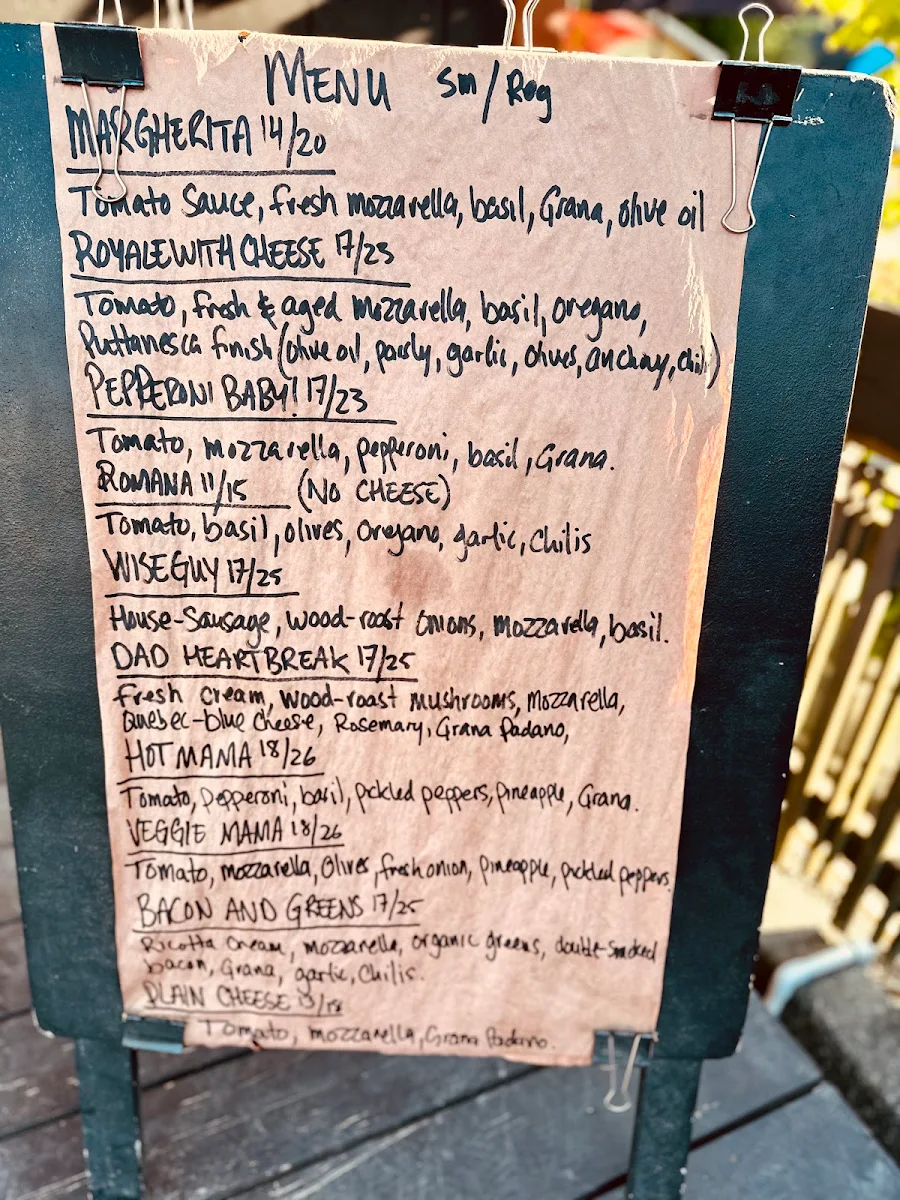 MENU Sm/Reg
MARGHERITA 14/20
Tomato Sauce, fresh mozzarella, basil, Grana, olive oil
ROYALE WITH CHEESE 17/23
Tomato, fresh & aged mozzarella, basil, oregano,
Puttanesca finish (olive oil, parsly, garlic, olives, anchovy, chili)
PEPPERONI BABY! 17/23
Tomato, mozzarella, pepperoni, basil, Grana.
ROMANA 11/15 (NO CHEESE)
Tomato, basil, olives, oregano, garlic, chilis
WISEGUY 17/25
House-Sausage, wood-roast onions, mozzarella, basil.
DAD HEARTBREAK 17/25
Fresh cream, wood-roast mushrooms, mozzarella,
Quebec-blue cheese, Rosemary, Grana Padano,
HOT MAMA 18/26
Tomato, pepperoni, basil, pickled peppers, pineapple, Grana.
VEGGIE MAMA 18/26
Tomato, mozzarella, olives, fresh onion, pineapple, pickled peppers.
BACON AND GREENS 17/25
Ricotta cream, mozzarella, organic greens, double-smoked
bacon, Grana, garlic, chilis.
PLAIN CHEESE
Tomato, mozzarella, Grana Padano.